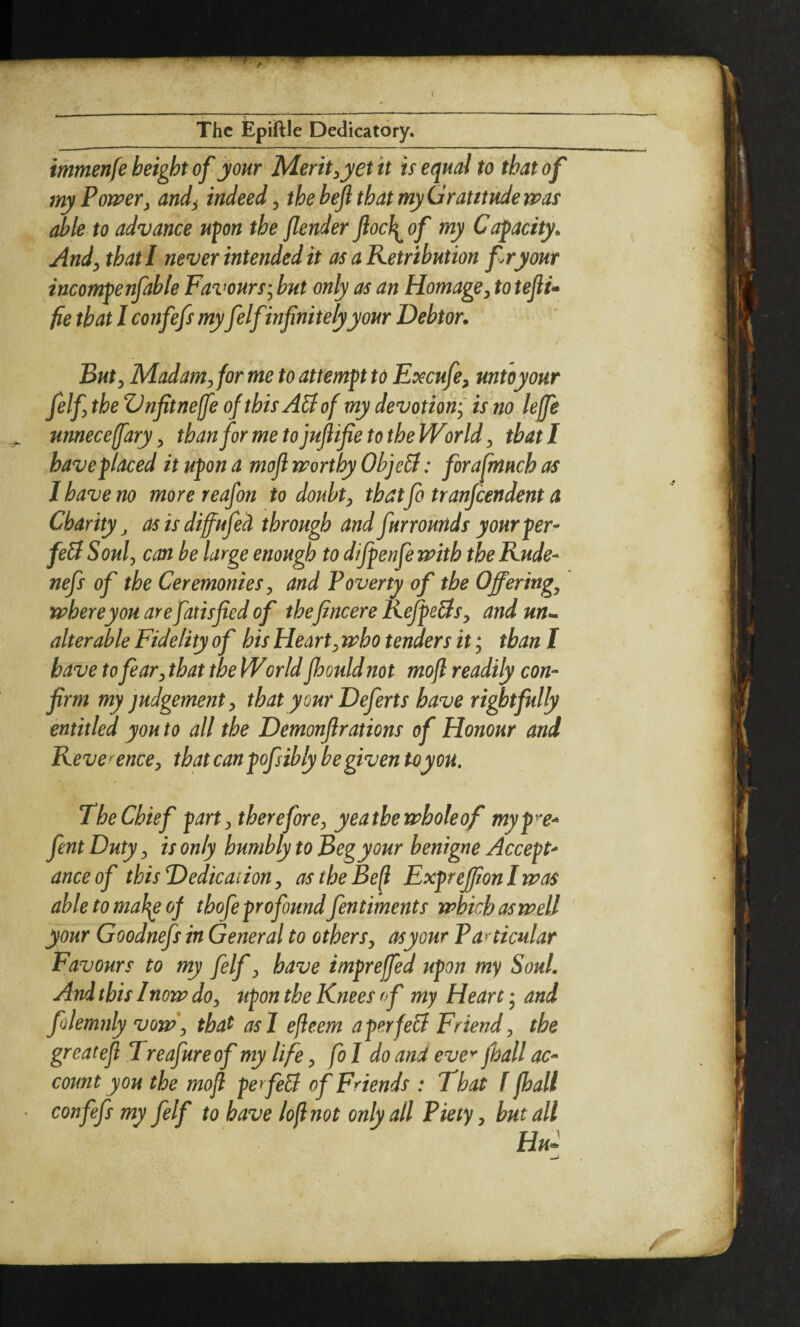 The Epiſtle Dedicatory.
immenſe height of your Merit, yet it is equal to that of
my Power, and, indeed, the beſt that my Gratitude was
able to advance upon the ſlender ſtock of my Capacity.
And, that I never intended it as a Retribution for your
incompenſable Favours; but only as an Homage, to teſti-
fie that I confeſs my ſelf infinitely your Debtor.
But, Madam, for me to attempt to Excuſe, unto your
ſelf, the Vnfitneſſe of this Act of my devotion; is no leſſe
unneceſſary, than for me to juſtifie to the World, that I
have placed it upon a moſt worthy Object: foraſmuch as
I have no more reaſon to doubt, that ſo tranſcendent a
Charity, as is diffuſed through and ſurrounds your per-
fect Soul, can be large enough to diſpenſe with the Rude-
neſs of the Ceremonies, and Poverty of the Offering,
where you are ſatisfied of the ſincere Reſpects, and un-
alterable Fidelity of his Heart, who tenders it; than I
have to fear, that the World ſhould not moſt readily con-
firm my judgement, that your Deſerts have rightfully
entitled you to all the Demonſtrations of Honour and
Reverence, that can poſsibly be given to you.
The Chief part, therefore, yea the whole of my pre-
ſent Duty, is only humbly to Beg your benigne Accept-
ance of this Dedication, as the Beſt Expreſſion I was
able to make of thoſe profound ſentiments which as well
your Goodneſs in General to others, as your Particular
Favours to my ſelf, have impreſſed upon my Soul.
And this I now do, upon the Knees of my Heart; and
ſolemnly vow, that as I eſteem a perfect Friend, the
greateſt Treaſure of my life, ſo I do and ever ſhall ac-
count you the moſt perfect of Friends: That I ſhall
confeſs my ſelf to have loſt not only all Piety, but all
Hu-